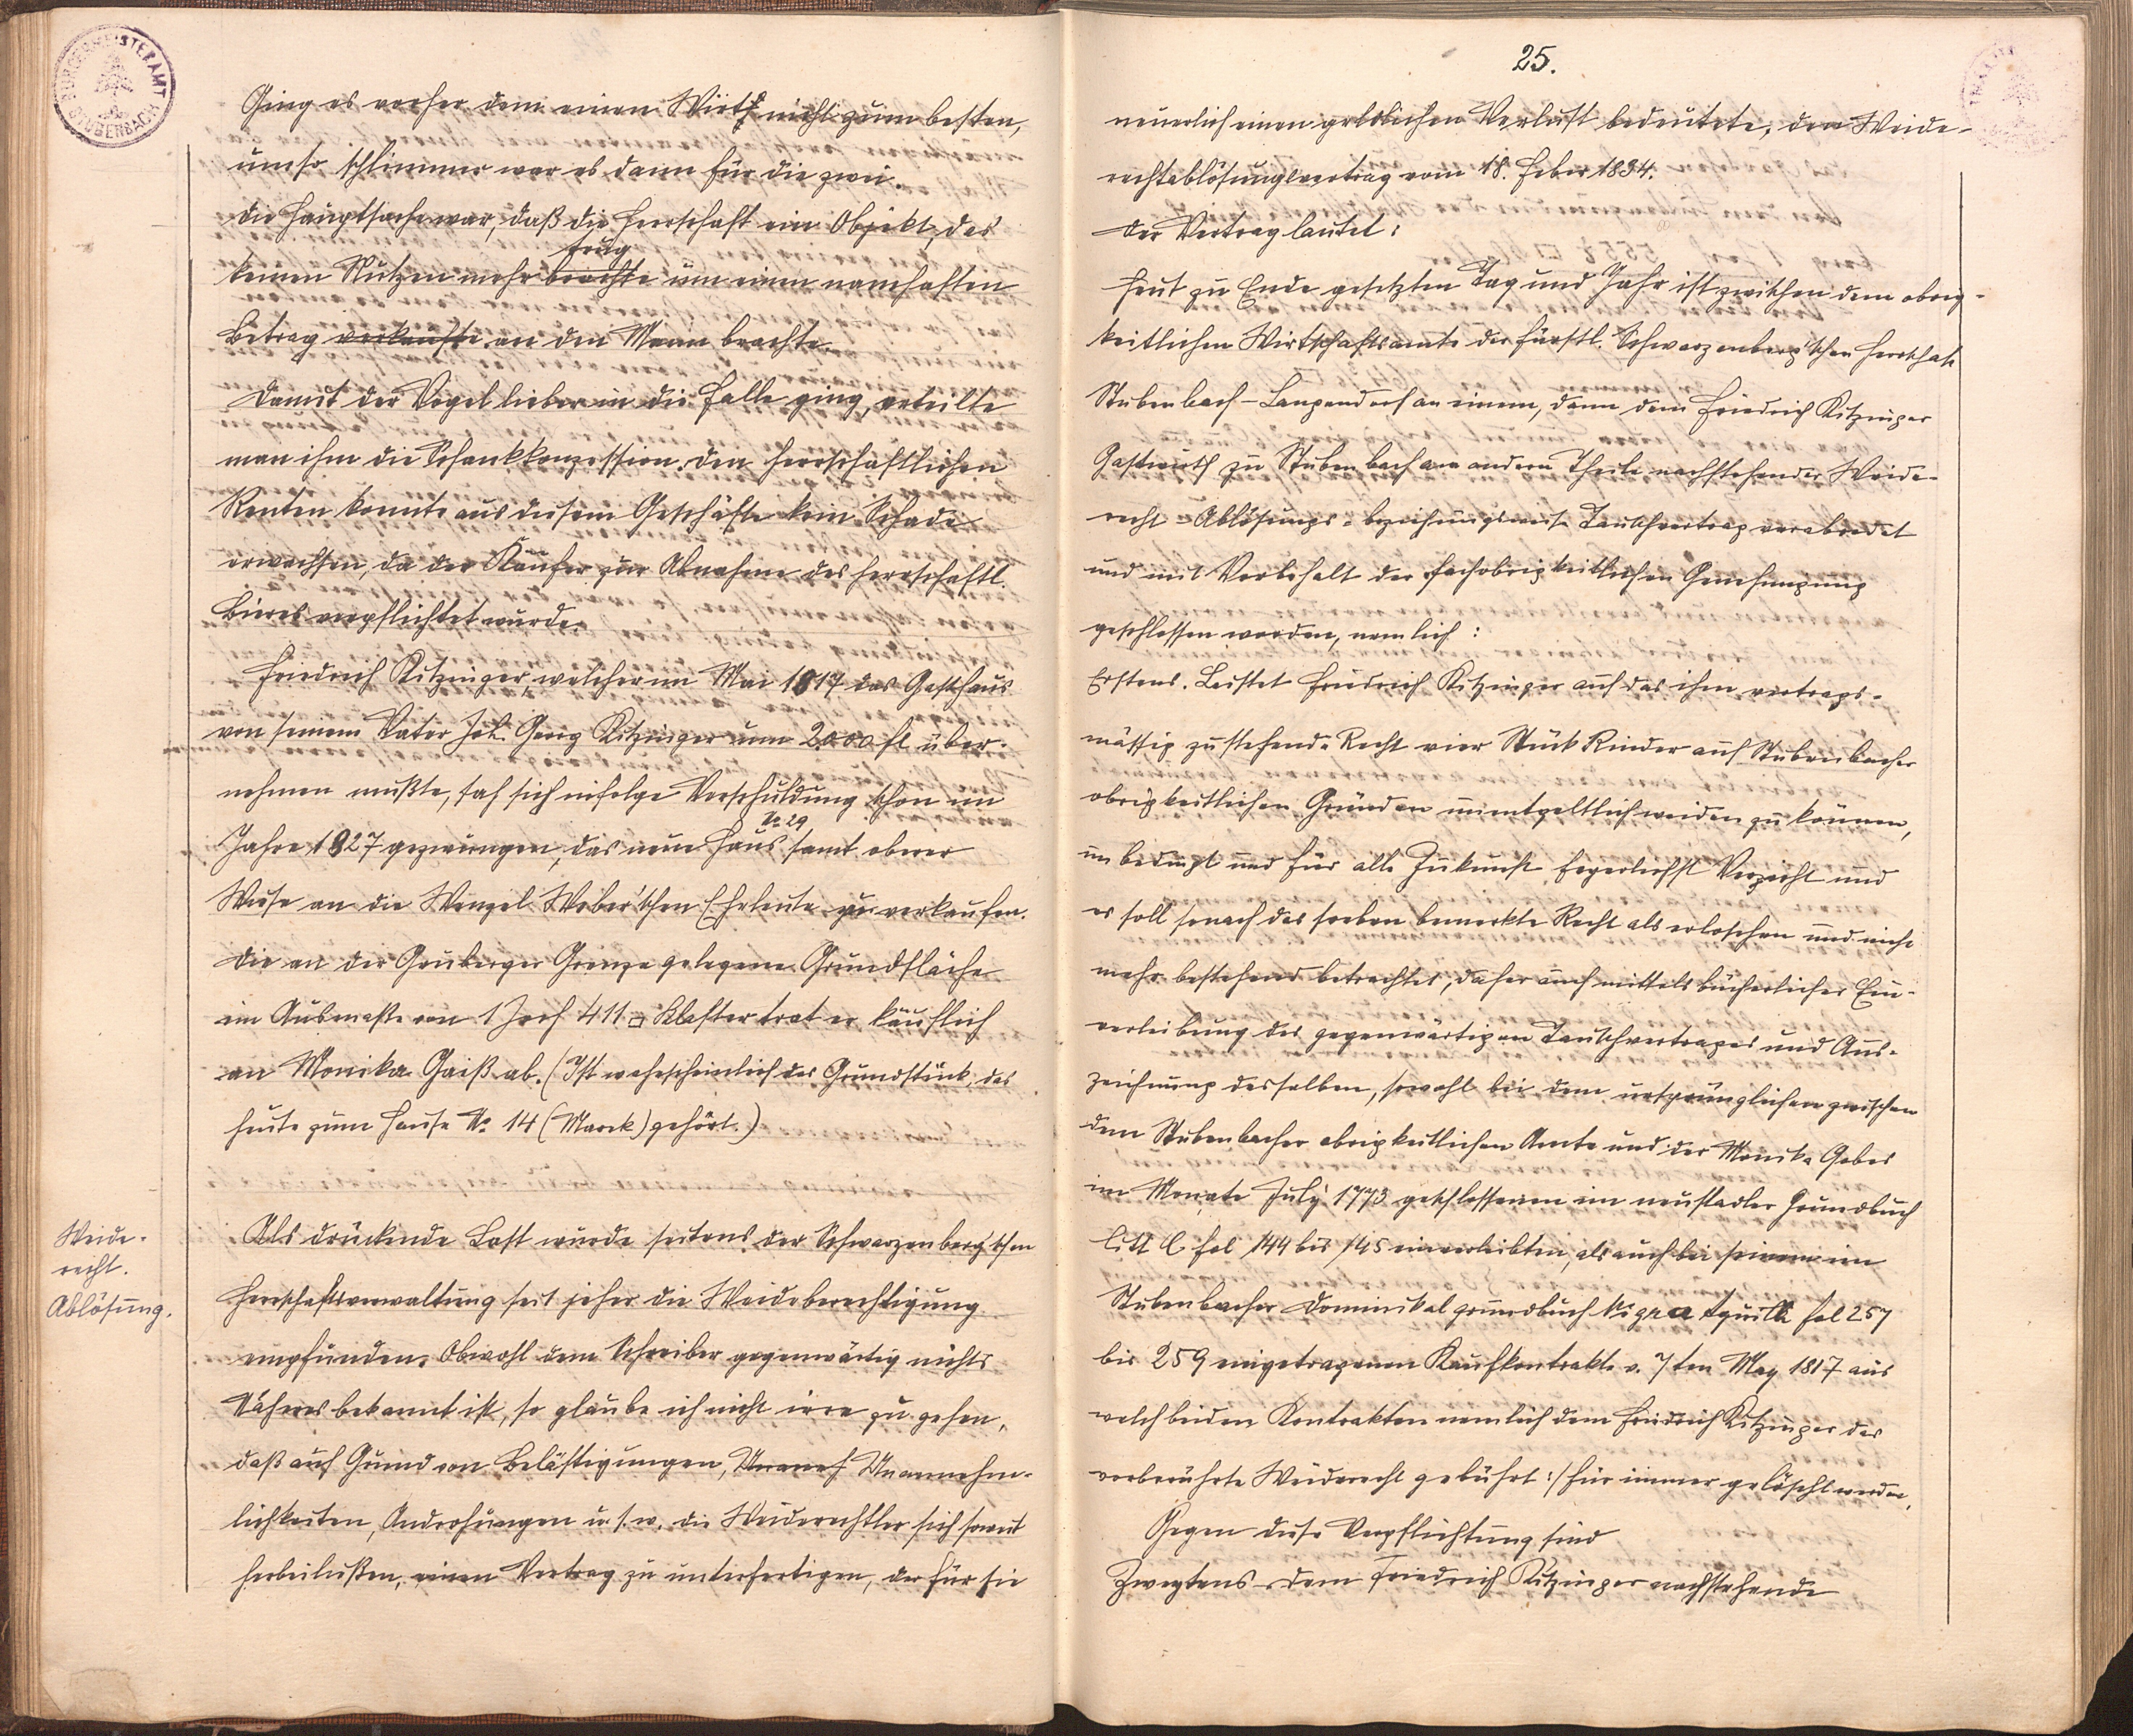 BÜRGERMEISTERAMT
STUBENBACH
Ging es vorher dem einen Wirth nicht zum besten,
umso schlimmer war es dann für die zwei.
Die Hauptsache war, daß die Herrschaft ein Objekt, das
trug
keinen Nutzen mehr brachte um einen namhaften
Betrag verkaufte an den Mann brachte.
Damit der Vogel lieber in die Falle ging, erteilte
man ihm die Schankkonzession. Den herrschaftlichen
Renten konnte aus diesem Geschäfte kein Schade
erwachsen, da der Käufer zur Abnahme des herrschaftl.
Bieres verpflichtet wurde.
Friedrich Kitzinger, welcher im Mai 1817 das Gasthaus
von seinem Vater Joh. Georg Kitzinger um 2000 fl über-
nehmen mußte, sah sich infolge Verschuldung schon im
No 29
Jahre 1827 gezwungen, das neue Haus samt oberer
Wiese an die Wenzel Weber'schen Eheleute zu verkaufen.
Die an der Gruberger Grenze gelegene Grundfläche
im Ausmaße von 1 Joch 411 □ Klafter trat er käuflich
an Monika Gaiß ab. (Ist wahrscheinlich das Grundstück, das
heute zum Hause No. 14 (Marek) gehört.)
Weide-
recht.
Ablösung.
Als drückende Last wurde seitens der Schwarzenberg'schen
Herrschaftsverwaltung seit jeher die Weideberechtigung
empfunden. Obwohl dem Schreiber gegenwärtig nichts
Näheres bekannt ist, so glaube ich nicht irre zu gehen,
daß auf Grund von Belästigungen, Unaneh Unannehm-
lichkeiten, Androhungen u. s. w. die Weiderechtler sich soweit
herbeiließen, einen Vertrag zu unterfertigen, der für sie
25.
neuerlich einen geldlichen Verlust bedeutete, den Weide-
rechtablösungsvertrag vom 18. Feber 1834.
Der Vertrag lautet:
Heut zu Ende gesetzten Tag und Jahr ist zwischen dem obrig-
keitlichen Wirtschaftsamte der fürstl. Schwarzenberg'schen Herrschaft
Stubenbach-Langendorf an einem, dann dem Friedrich Kitzinger
Gastwirth zu Stubenbach am andern Theile nachstehender Weide-
recht-Ablösungs- beziehungsweise Tauschvertrag verabredet
und mit Vorbehalt der hochobrigkeitlichen Genehmigung
geschlossen worden, nemlich:
Erstens. Leistet Friedrich Kitzinger auf das ihm vertrags-
mässig zustehende Recht vier Stück Rinder auf Stubenbacher
obrigkeitlichen Gründen unentgeltlich weiden zu können,
unbedingt und für alle Zukunft feyerlichst Verzicht und
es soll sonach das soeben bemerkte Recht als erloschen und nicht
mehr bestehend betrachtet, daher auch mittels bücherlicher Ein-
verleibung des gegenwärtigen Tauschvertrages und Aus-
zeichnung desselben, sowohl bei dem ursprünglichen zwischen
dem Stubenbacher obrigkeitlichen Amte und der Monika Gebes
im Monate July 1773 geschlossenen im neustadler Grundbuch
litt C fol 144 bis 145 einverleibten, als auch bei seinem im
Stubenbacher Dominikalgrundbuch Nigra Aquilla fol 257
bis 259 eingetragenen Kaufkontrakte v. 7ten May 1817 aus
welch beiden Kontrakten nemlich dem Friedrich Kitzinger das
vorberührte Weiderecht gebührt :/ für immer gelöscht werden.
Gegen diese Verpflichtung sind
Zweytens dem Friedrich Kitzinger nachstehende